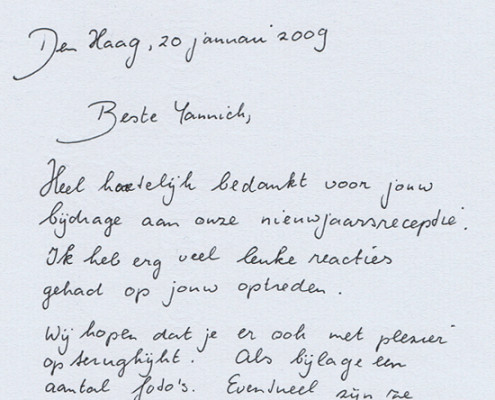 Den Haag, 20 januari 2009
Beste Yannich,
Heel hartelijk bedankt voor jouw
bijdrage aan onze nieuwjaarsreceptie.
Ik heb erg veel leuke reacties
gehad op jouw optreden.
Wij hopen dat je er ook met plezier
op terugkijkt. Als bijlage een
aantal foto's. Eventueel zijn ze